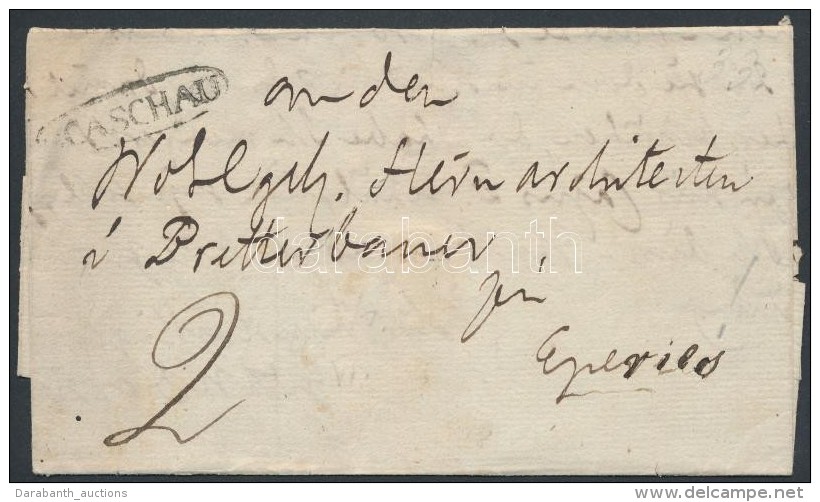 CASCHAU
an den
Wohlgeb. Herrn architecten
Pretterbauer
darabanth
zu
Eperies
2
Darabanth_auctions
www.delcampe.net